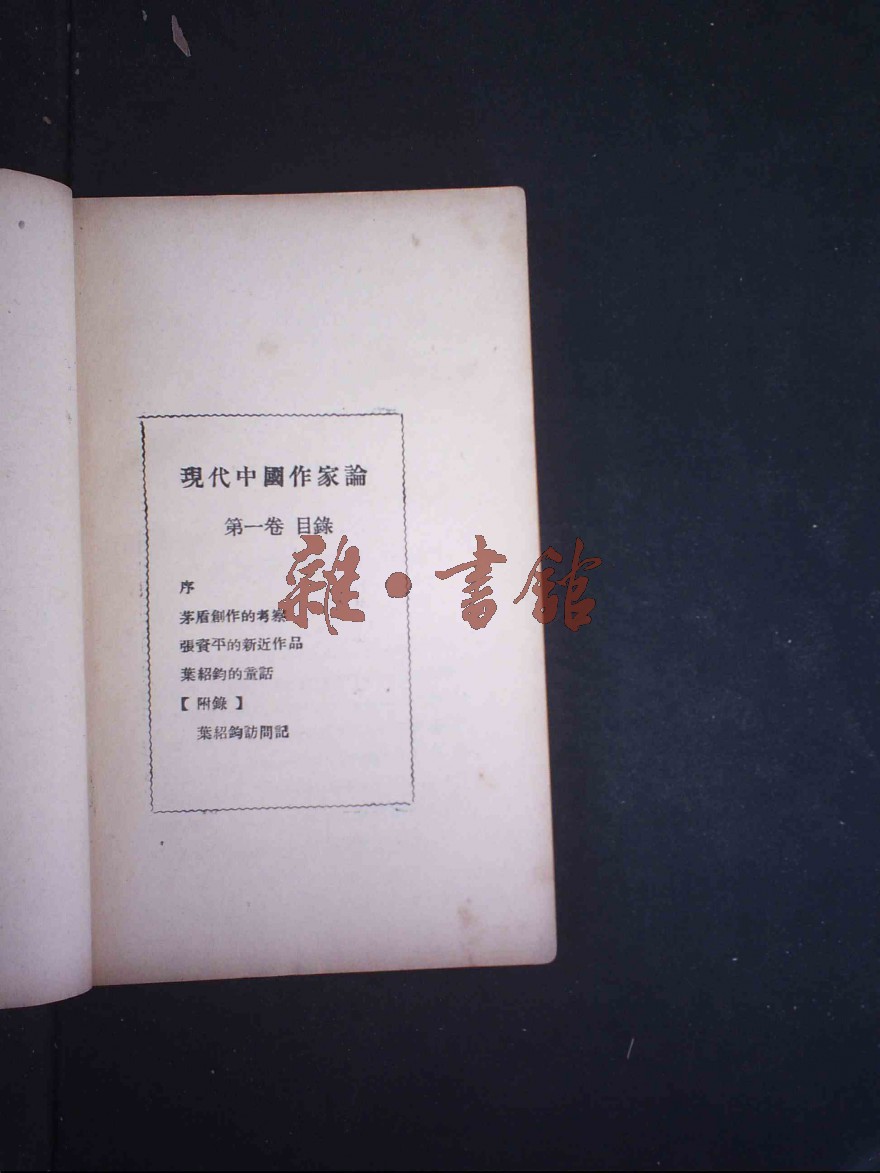 現代中國作家論
第一卷 目錄
序
茅盾創作的考察
張資平的新近作品
葉紹鈞的童話
【附錄】
葉紹鈞訪問記
雜·書館